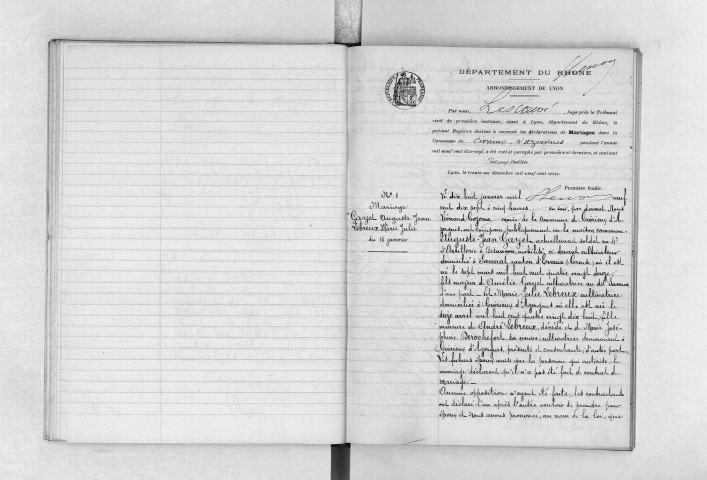 DÉPARTEMENT DU RHÔNE
ARRONDISSEMENT DE LYON
Par nous, Juge près le Tribunal
civil de première instance, séant à Lyon, département du Rhône, le
présent Registre destiné à recevoir les déclarations de Mariages dans la
Commune de d'Azergues pendant l'année
mil neuf cent dix-sept, a été coté et paraphé par première et dernière, et contient
feuillets.
Lyon, le trente-un décembre mil neuf cent seize.
Première feuille
N° 1
Mariage
Gazet Auguste Jean
Lebreux Marie Julie
du 18 janvier
Le dix huit janvier mil neuf
cent dix sept à neuf heures du soir, par devant Nous
Léonard maire de la Commune de d'A
zergues, ont comparu publiquement en la maison commune
Auguste-Jean Gazet actuellement soldat au 4e
d'Artillerie à Besançon, mobilisé, et devant cultivateur
domicilié à Sannat, canton d'Evaux (Creuse), où il est
né le sept mars mil huit cent quatre vingt
fils majeur d'Amélie Gazet cultivatrice au dit Sannat
d'une part — Et Marie-Julie Lebreux cultivatrice
domiciliée à d'Azergues où elle est née le
seize avril mil huit cent quatre vingt dix huit, fille
mineure de André Lebreux, décédé et de Marie José-
phine Derochefort sa veuve, cultivatrice demeurant à
d'Azergues, présente et consentante, d'autre part —
Les futurs époux ainsi que la personne qui autorise le
mariage déclarent qu'il n'a pas été fait de contrat de
mariage —
Aucune opposition n'ayant été faite, les contractants
ont déclaré l'un après l'autre vouloir se prendre pour
époux et Nous avons prononcé, au nom de la loi, que